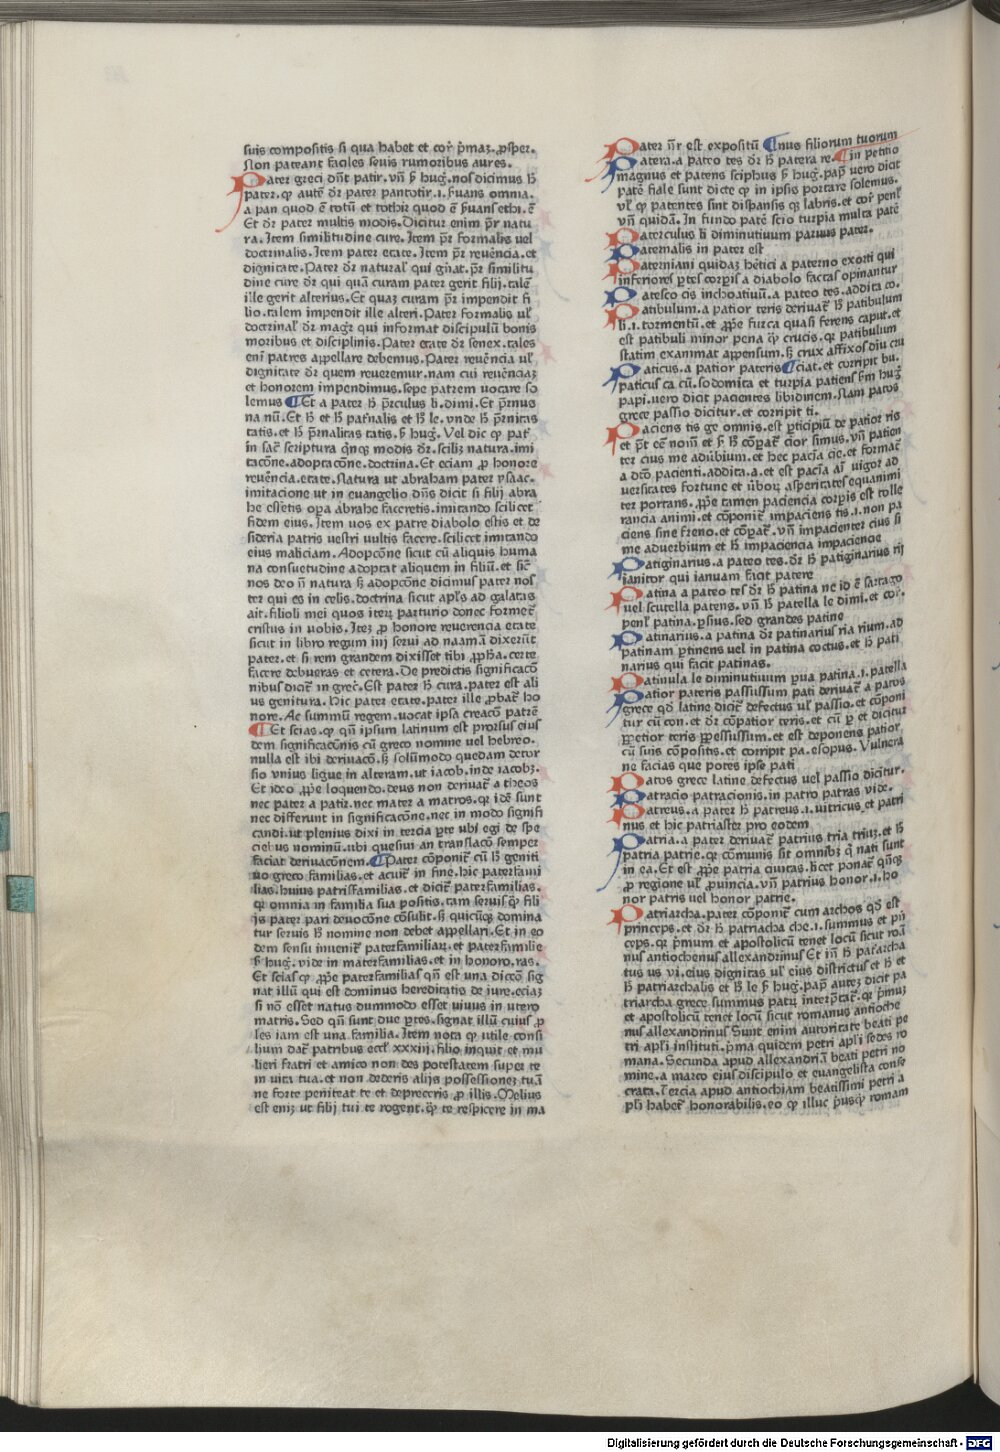 suis compositis si qua habet et cor̃ p̃maȝ. ꝓsper.
Non pateant faciles seuis rumoribus aures.
Pater greci dn̄t patir. vn̄ ẜm hug̃. nos dicimus hͦ
pater. ꝙ autē dr̄ pater pantotir .i. ſuans omnia.
a pan quod ē totū et tothir quod ē p̄uans ethi. ē
Et dr̄ pater multis modis. Dicitur enim pr̄ natu
ra. Item similitudine cure. Item pr̄ formalis uel
doctrinalis. Item pater etate. Item pr̄ reuēncia. et
dignitate. Pater dr̄ naturał qui gn̄at. pr̄ similitu
dine cure dr̄ qui quā curam pater gerit filij. talē
ille gerit alterius. Et quaȝ curam pr̄ impendit fi
lio. talem impendit ille alteri. Pater formalis uł
doctrinał dr̄ magr̄ qui informat discipulū bonis
moribus et disciplinis. Pater etate dr̄ senex. tales
eni patres appellare debemus. Pater reuēncia uł
dignitate dr̄ quem reueremur. nam cui reuēnciaȝ
et honorem impendimus. sepe patrem uocare so
lemus Et a pater hͦ p̄rculus li. dimi. Et p̄rnus
na nū. Et hͨ et hͨ pat̄nalis et hͦ le. vnde hͨ p̄rnitas
tatis. et hͨ p̄rnalitas tatis. ẜm hug̃. Vel dic ꝙ pat̄
in sac̄ scriptura qͥnqȝ modis dr̄. scilȝ natura. imi
tacōne. adoptacōne. doctrina. Et eciam ꝓ honore
reuēncia. etate. Natura ut abraham pater ysaac.
imitacione ut in euangelio dn̄s dicit si filij abra
he essetis opa abrahe faceretis. imitando scilicet
fidem eius. Item uos ex patre diabolo estis et de
sideria patris uestri uultis facere. scilicet imitando
eius maliciam. Adopcōne sicut cū aliquis huma
na consuetudine adoptat aliquem in filiū. et sic̄
nos deo n̄ natura sȝ adopcōne dicimus pater nos
ter qui es in celis. doctrina sicut apl̄s ad galatas
ait. filioli mei quos iterȝ parturio donec formet̄
cristus in uobis. Iteȝ ꝓ honore reuerencia etate
sicut in libro regum iiij serui ad naamā dixerūt
pater. et si rem grandem dixisset tibi ꝓpha. certe
facere debueras et cetera. De predictis significacō
nibus dicit̄ in grec̄. Est pater hͨ cura. pater est ali
us genitura. Hic pater etate. pater ille ꝓbat̄ ho
nore. Ac summū regem. uocat ipsa creacō patrē
Et scias. ꝙ qn̄ ipsum latinum est prorsus eius
dem significacōnis cū greco nomine uel hebreo.
nulla est ibi deriuacō. sȝ solūmodo quedam detor
sio vnius ligue in alteram. ut iacob. inde iacobȝ.
Et ideo ꝓpe loquendo. deus non deriuat̄ a theos
nec pater a patir. nec mater a matros. qr idē sunt
nec differunt in significacōne. nec in modo signifi
candi. ut plenius dixi in tercia p̱te ubi egi de spe
ciebus nominū. ubi quesiui an translacō semper
faciat deriuacōnem. Pater cōponit̄ cū hͦ geniti
uo greco familias. et acuit̄ in fine. hic paterfami
lias. huius patrisfamilias. et dicit̄ paterfamilias.
qr omnia in familia sua positis. tam seruis qͣ fili
js pater pari deuocōne cōsulit. sȝ quicūqȝ domina
tur seruis hͦ nomine non debet appellari. Et in eo
dem sensu inuenit̄ paterfamiliaꝝ. et paterfamilie
ẜm hug̃. vide in materfamilias. et in honoro. ras.
Et scias ꝙ ꝓpe paterfamilias qn̄ est una dictō sig
nat illū qui est dominus hereditatis de iure. eciaȝ
si nō esset natus dummodo esset uiuus in utero
matris. Sed qn̄ sunt due p̱tes. signat illū cuius ꝓ
les iam est una familia. Item nota ꝙ utile consi
lium dat̄ patribus eccł xxxiij. filio inquit et mu
lieri fratri et amico non des potestatem super te
in uita tua. et non dederis alijs possessioneȝ tuā
ne forte peniteat te et depreceris ꝓ illis. Melius
est eniȝ ut filij tui te rogent. qͣ te respicere in ma
Pater n̄r est expositū nus filiorum tuorum
Patera. a pateo tes dr̄ hͨ patera re. in petitio
magnus et patens sciphus ẜm hug̃. pap̄ uero dicit
patē fiale sunt dicte ꝙ in ipsis portare solemus.
vł ꝙ patentes sint dispansis qꝫ labris. et cor̃ penł
vn̄ quidā. In fundo patē scio turpia multa patē
Paterculus li diminutiuum paruus pater.
Paternalis in pater est
Paterniani quidaȝ hetici a paterno exorti qui
inferiores p̱tes corpis a diabolo factas opinantur
Patesco cis inchoatiuū. a pateo tes. addita co.
Patibulum. a patior teris deriuat̄ hͦ patibulum
li .i. tormentū. et ꝓpe furca quasi ferens caput. et
est patibuli minor pena qͣ crucis. qr patibulum
statim examinat appensum. sȝ crux affixos diu cru
Paticus. a patior pateris ciat. et corripit bu.
paticus ca cū. sodomita et turpia patiens ẜm hug̃
papi. uero dicit pacientes libidinem. Nam patos
grece passio dicitur. et corripit ti.
Paciens tis ge omnis. est p̱ticipiū de patior ris
et pt̄ cē noīm et ẜm hͨ cōparat̄ cior simus. vn̄ pacien
ter cius me aduerbium. et hec pacīa cie. et format̄
a dtō pacienti. addita. a. et est pacīa aī uigor ad
uersitates fortune et ūboꝝ asperitates equanimi
ter portans. ꝓpe tamen paciencia corpis est tolle
rancia animi. et cōponit̄ impaciens tis .i. non pa
ciens sine freno. et cōpat̄. vn̄ impacienter cius si
me aduerbium et hͨ impaciencia impaciencie
Patiginarius. a pateo tes. dr̄ hͨ patiginarius rij
ianitor qui ianuam facit patere
Patina a pateo tes dr̄ hͨ patina ne id ē sartago
uel scutella patens. vn̄ hͨ patella le dimi. et cor̃.
penł patina. ꝑsius. sed grandes patine
Patinarius. a patina dr̄ patinarius ria rium. ad
patinam p̱tinens uel in patina coctus. et hͨ pati
narius qui facit patinas.
Patinula le diminutiuum p̱ua patina .i. patella
Patior pateris passussum pati deriuat̄ a patos
grece qd̄ latine dicit̄ defectus uł passio. et cōponi
tur cū con. et dr̄ cōpatior teris. et cū p̱ et dicitur
p̱petior teris p̱pessussum. et est deponens patior
cū suis cōpositis. et corripit pa. esopus. Vulnera
ne facias que potes ipse pati
Patos grece latine defectus uel passio dicitur.
Patracio patracionis. in patro patras vide.
Patreus. a pater hͨ patreus .i. uitricus et patri
nus et hic patriaster pro eodem
Patria. a pater deriuat̄ patrius tria triuȝ. et hͨ
patria patrie. qr cōmunis sit omnibȝ qͥ nati sunt
in ea. Et est ꝓpe patria ciuitas. licet ponat̄ qn̄qȝ
ꝓ regione uł ꝓuincia. vn̄ patrius honor .i. ho
nor patris uel honor patrie.
Patriarcha. pater cōponit̄ cum archos qd̄ est
princeps. et dr̄ hͨ patriacha che .i. summus et pri
ceps. qr p̄mum et apostolicū tenet locū sicut romā
nus antiochenus allexandrinus Et in̄ hͨ pat̄archa
tus us vi. eius dignitas uł eius districtus et hͨ et
hͨ patriarchalis et hͦ le ẜm hug̃. pap̄ auteȝ dicit pa
triarcha grece summus patrū interp̄tat̄. qr p̄muȝ
et apostolicū tenet locū sicut romanus antioche
nus allexandrinus Sunt enim autoritate beati pe
tri apl̄i instituti. p̄ma quidem petri apl̄i sedes ro
mana. Secunda apud allexandriā beati petri no
mine. a marco eius discipulo et euangelista conse
crata. Tercia apud antiochiam beatissimi petri a
pl̄i habet̄ honorabilis. eo ꝙ illuc p̄usqȝ romam
Digitalisierung gefördert durch die Deutsche Forschungsgemeinschaft - DFG